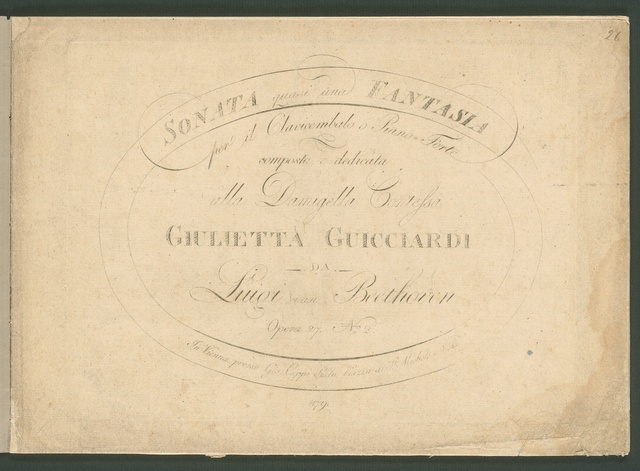 26
SONATA quasi una FANTASIA
per il Clavicembalo o Piano=Forte
composta e dedicata
alla Damigella Contessa
GIULIETTA GUICCIARDI
DA
Luigi van Beethoven
Opera 27. No. 2.
In Vienna presso Gio. Cappi Sulla Piazza di St. Michele No. 5.
879.